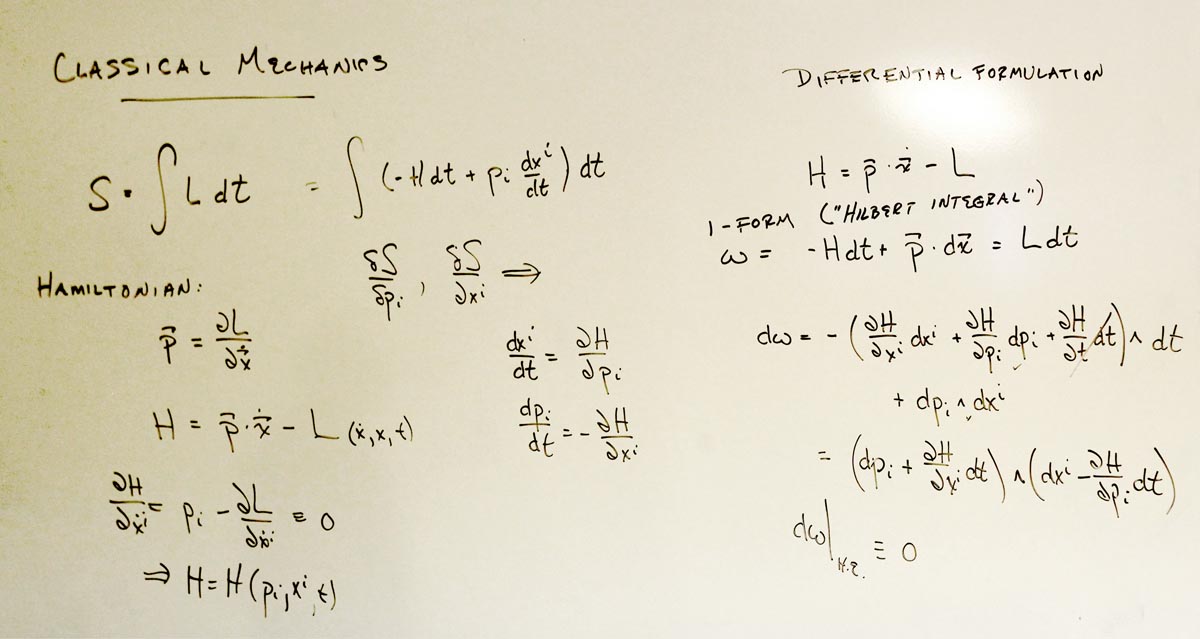 CLASSICAL MECHANICS
S = ∫ L dt = ∫ (-H dt + pᵢ dxⁱ/dt) dt
δS/δpᵢ , δS/∂xⁱ ⟹
HAMILTONIAN:
p⃗ = ∂L/∂ẋ⃗
H = p⃗·ẋ⃗ - L(ẋ,x,t)
∂H/∂ẋⁱ = pᵢ - ∂L/∂ẋⁱ ≡ 0
⇒ H = H(pᵢ, xⁱ, t)
dxⁱ/dt = ∂H/∂pᵢ
dpᵢ/dt = - ∂H/∂xⁱ
DIFFERENTIAL FORMULATION
H = p⃗·ẋ⃗ - L
1-FORM ("HILBERT INTEGRAL")
ω = -H dt + p⃗·dx⃗ = L dt
dω = - (∂H/∂xⁱ dxⁱ + ∂H/∂pᵢ dpᵢ + ∂H/∂t dt) ∧ dt
+ dpᵢ ∧ dxⁱ
= (dpᵢ + ∂H/∂xⁱ dt) ∧ (dxⁱ - ∂H/∂pᵢ dt)
dω|H.E. ≡ 0